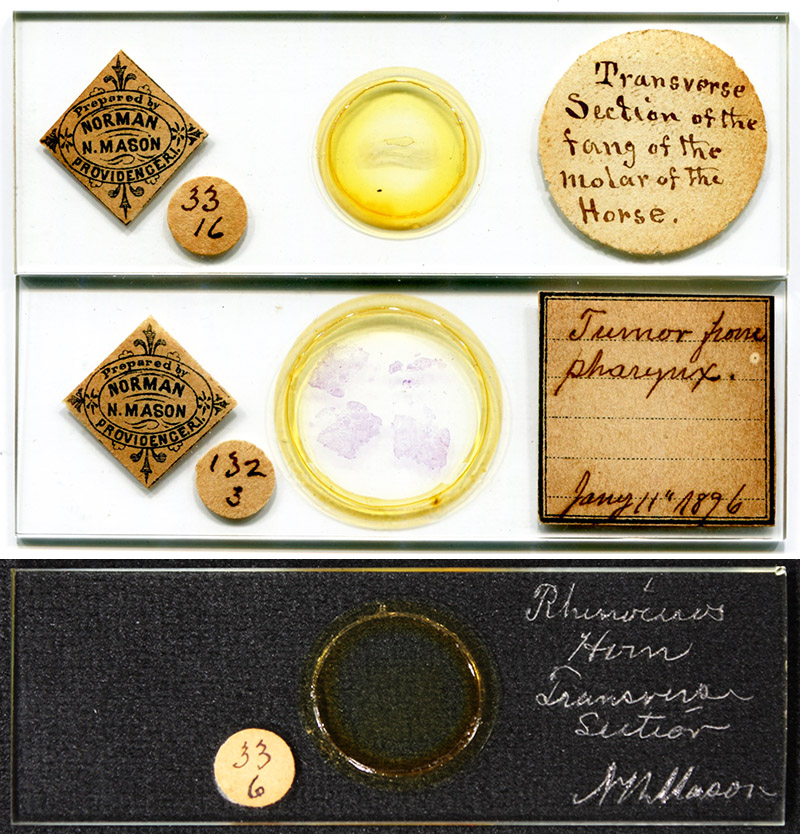 Prepared by
NORMAN
N. MASON
PROVIDENCE R.I.
33
16
Transverse
Section of the
fang of the
molar of the
Horse.
Prepared by
NORMAN
N. MASON
PROVIDENCE R.I.
132
3
Tumor from
pharynx.
Jany 11" 1896
33
6
Rhinoceros
Horn
Transverse
Section
N N Mason